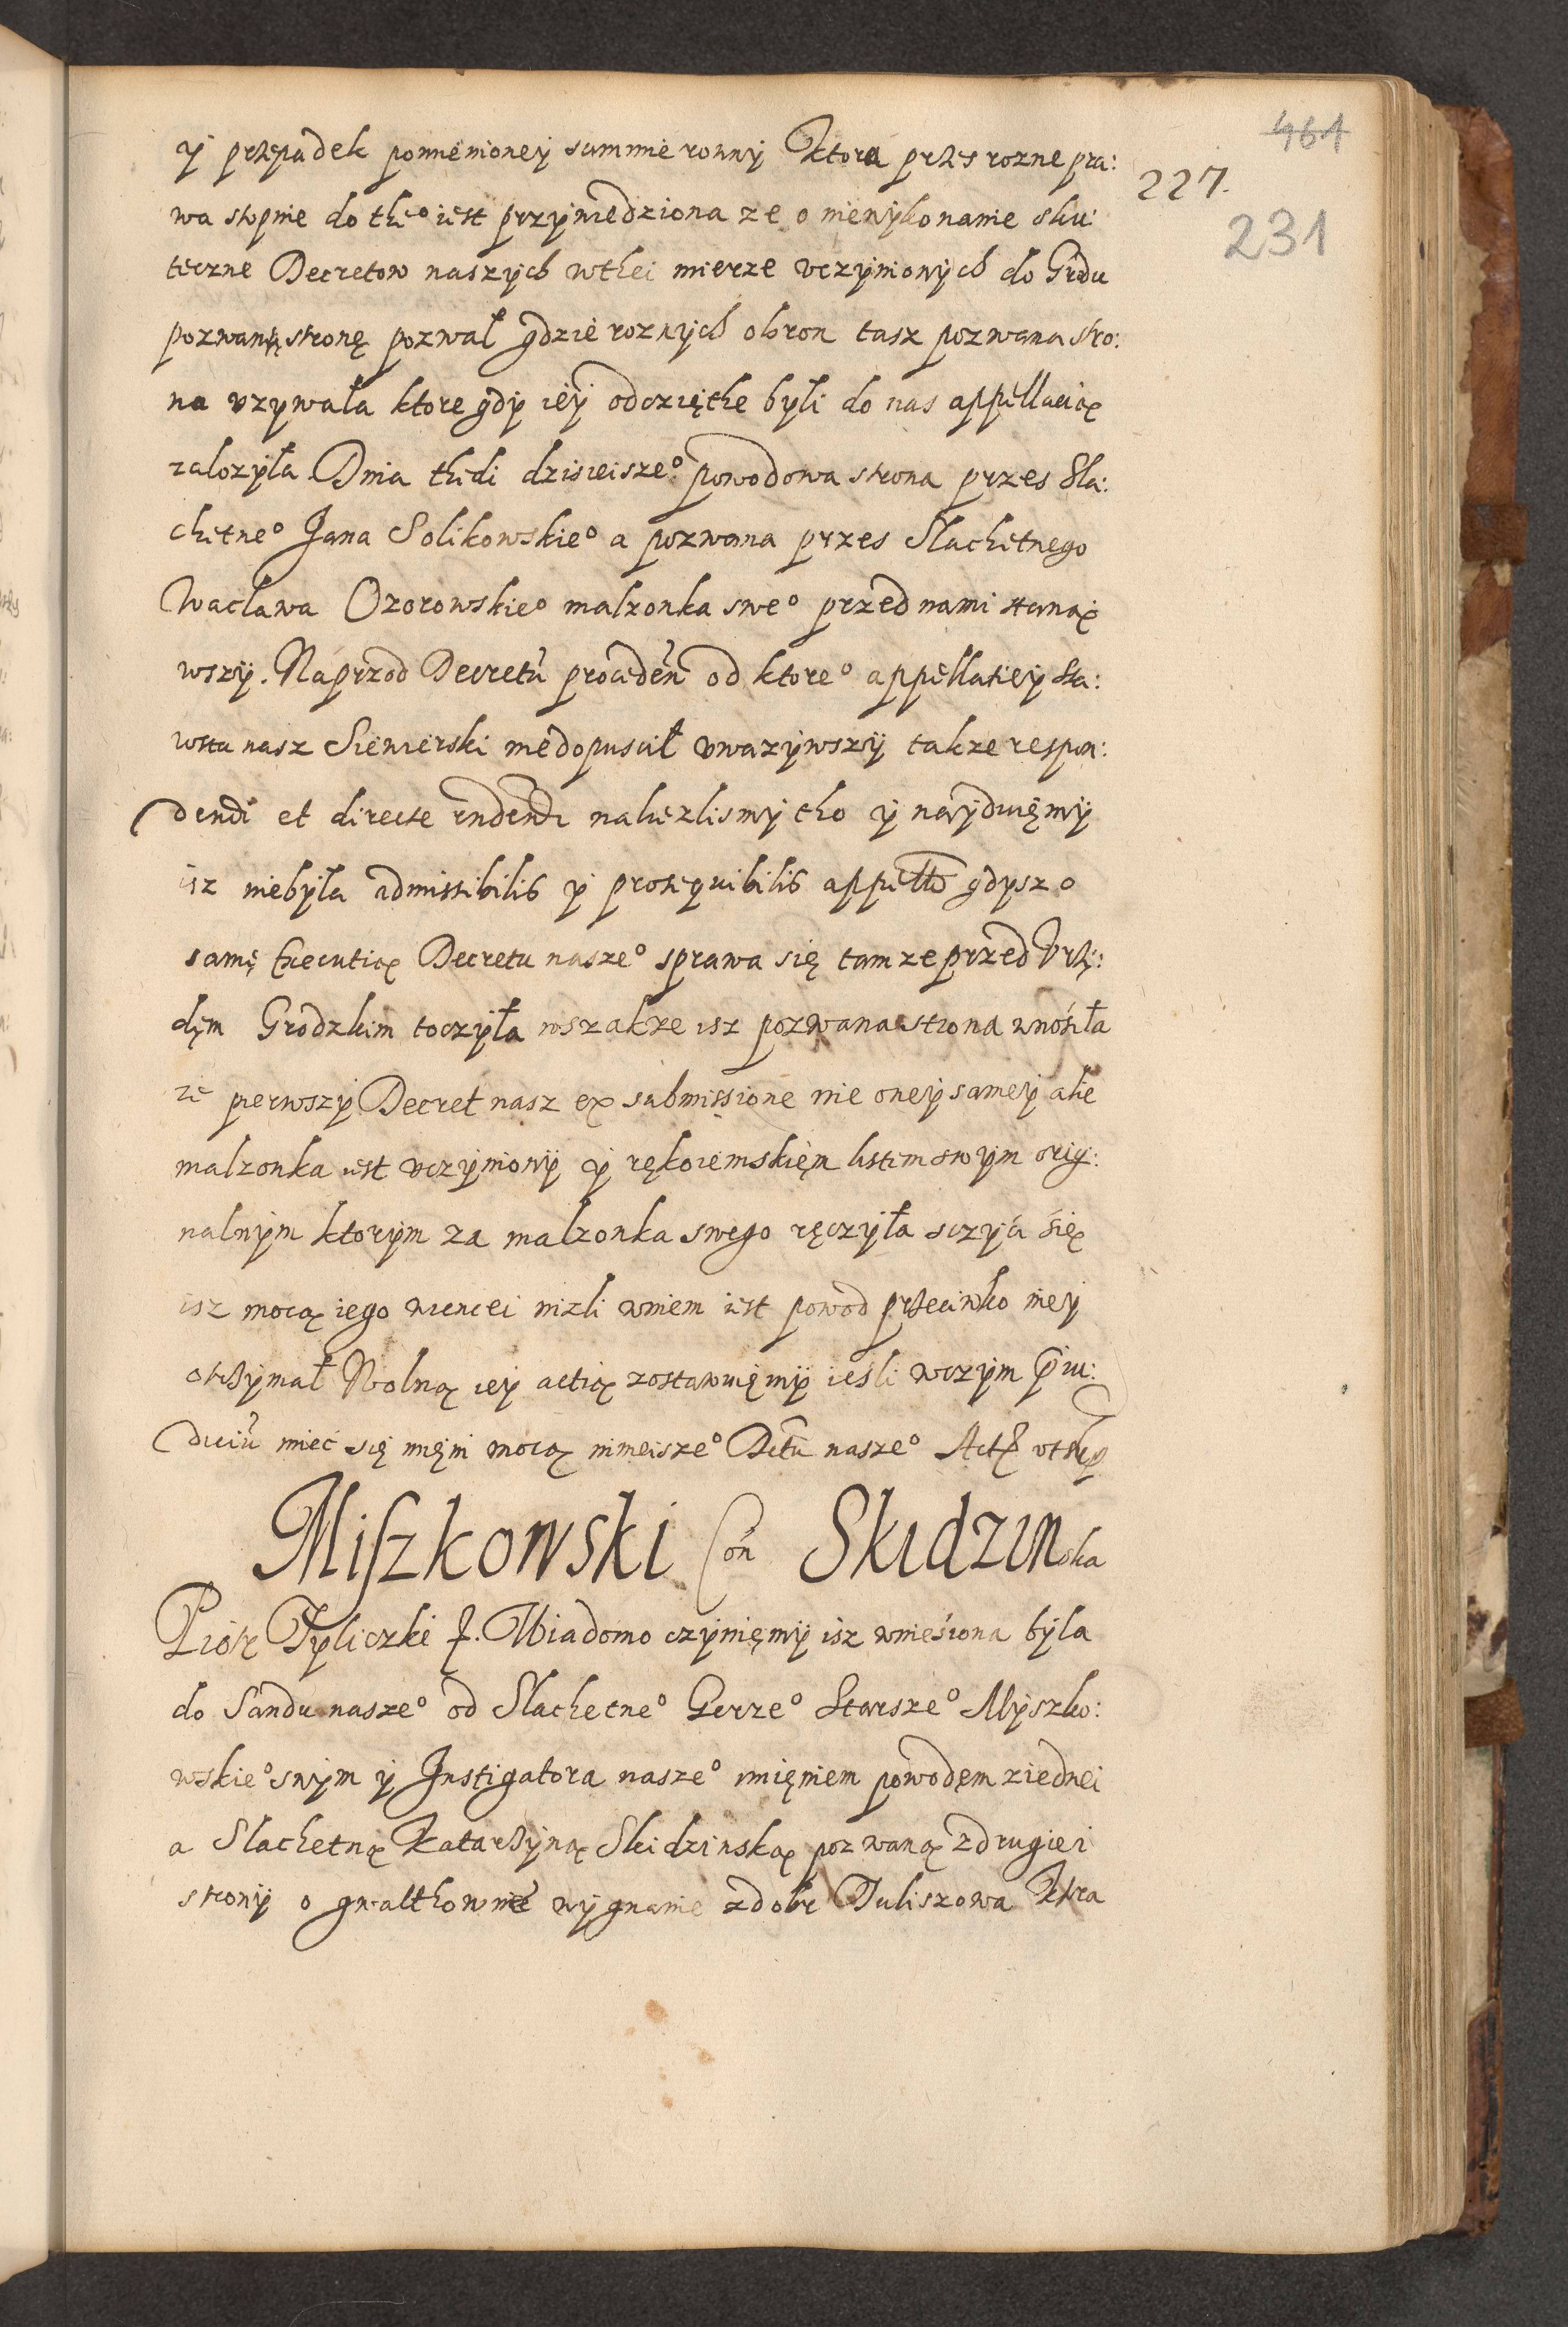 464
227.
231
ÿ przepadek pomienioneÿ summie rownÿ ktora przes rozne pra:
wa stopnie do the° iest przÿwiedziona ze o niewÿkonanie sku:
teczne Decretow naszÿch wthei mierze vczÿnionÿch do Grdu
pozwaną stronę pozwał gdzie roznÿch obron tasz pozwana stro:
na vzywała ktore gdÿ ieÿ odczięthe bÿli do nas appellacią
założÿła Dnia thedi dzisieisze° powodowa strona przes Sla:
chetne° Jana Solikowskie° a pozwana przes Slachetnego
Wacława Ozorowskie° malzonka swe° przed nami staną
wszÿ. Naprzod Decretu proceden od ktore° appellatieÿ Sta:
wsta nasz Siewierski niedopuscił vwazÿwszÿ takze respon:
dendi et directe rndendi nalezlismÿ tho ÿ naÿduięmÿ
isz niebÿła admissibilis ÿ prosequibilis appello gdysz o
samę Executią Decretu nasze° sprawa się tamze przed Vrzę:
dęm Grodzkim toczÿła wszakze isz pozwana strona wnosiła
ze pierwszÿ Decret nasz ex submissione nie oneÿ sameÿ alie
malzonka iest vczÿnionÿ ÿ rękoiemskięm listem swÿm orig:
nalnÿm ktorÿm za malzonka swego ręczÿła sczÿci się
isz mocą iego wiencei nizli wniem iest powod przeciwko nieÿ
otrzÿmał Wolną ieÿ actią zostawuięmÿ iesli wczÿm piu:
diciu mieć się mięni mocą ninieisze° Dctu nasze° Act vt
Miszkowski Con Skidzinska
Piotr Tÿliczki Wiadomo czÿnięmÿ isz wniesiona bÿla
do Sandu nasze° od Slachetne° Gerze° Starsze° Mÿszko:
wskie° swÿm ÿ Instigatora nasze° imięniem powodęm ziednei
a Slachetną Katarzÿną Skidzinską pozwaną zdrugiei
stronÿ o gwalthowne wÿgnanie zdobr Tuliszowa Ktra